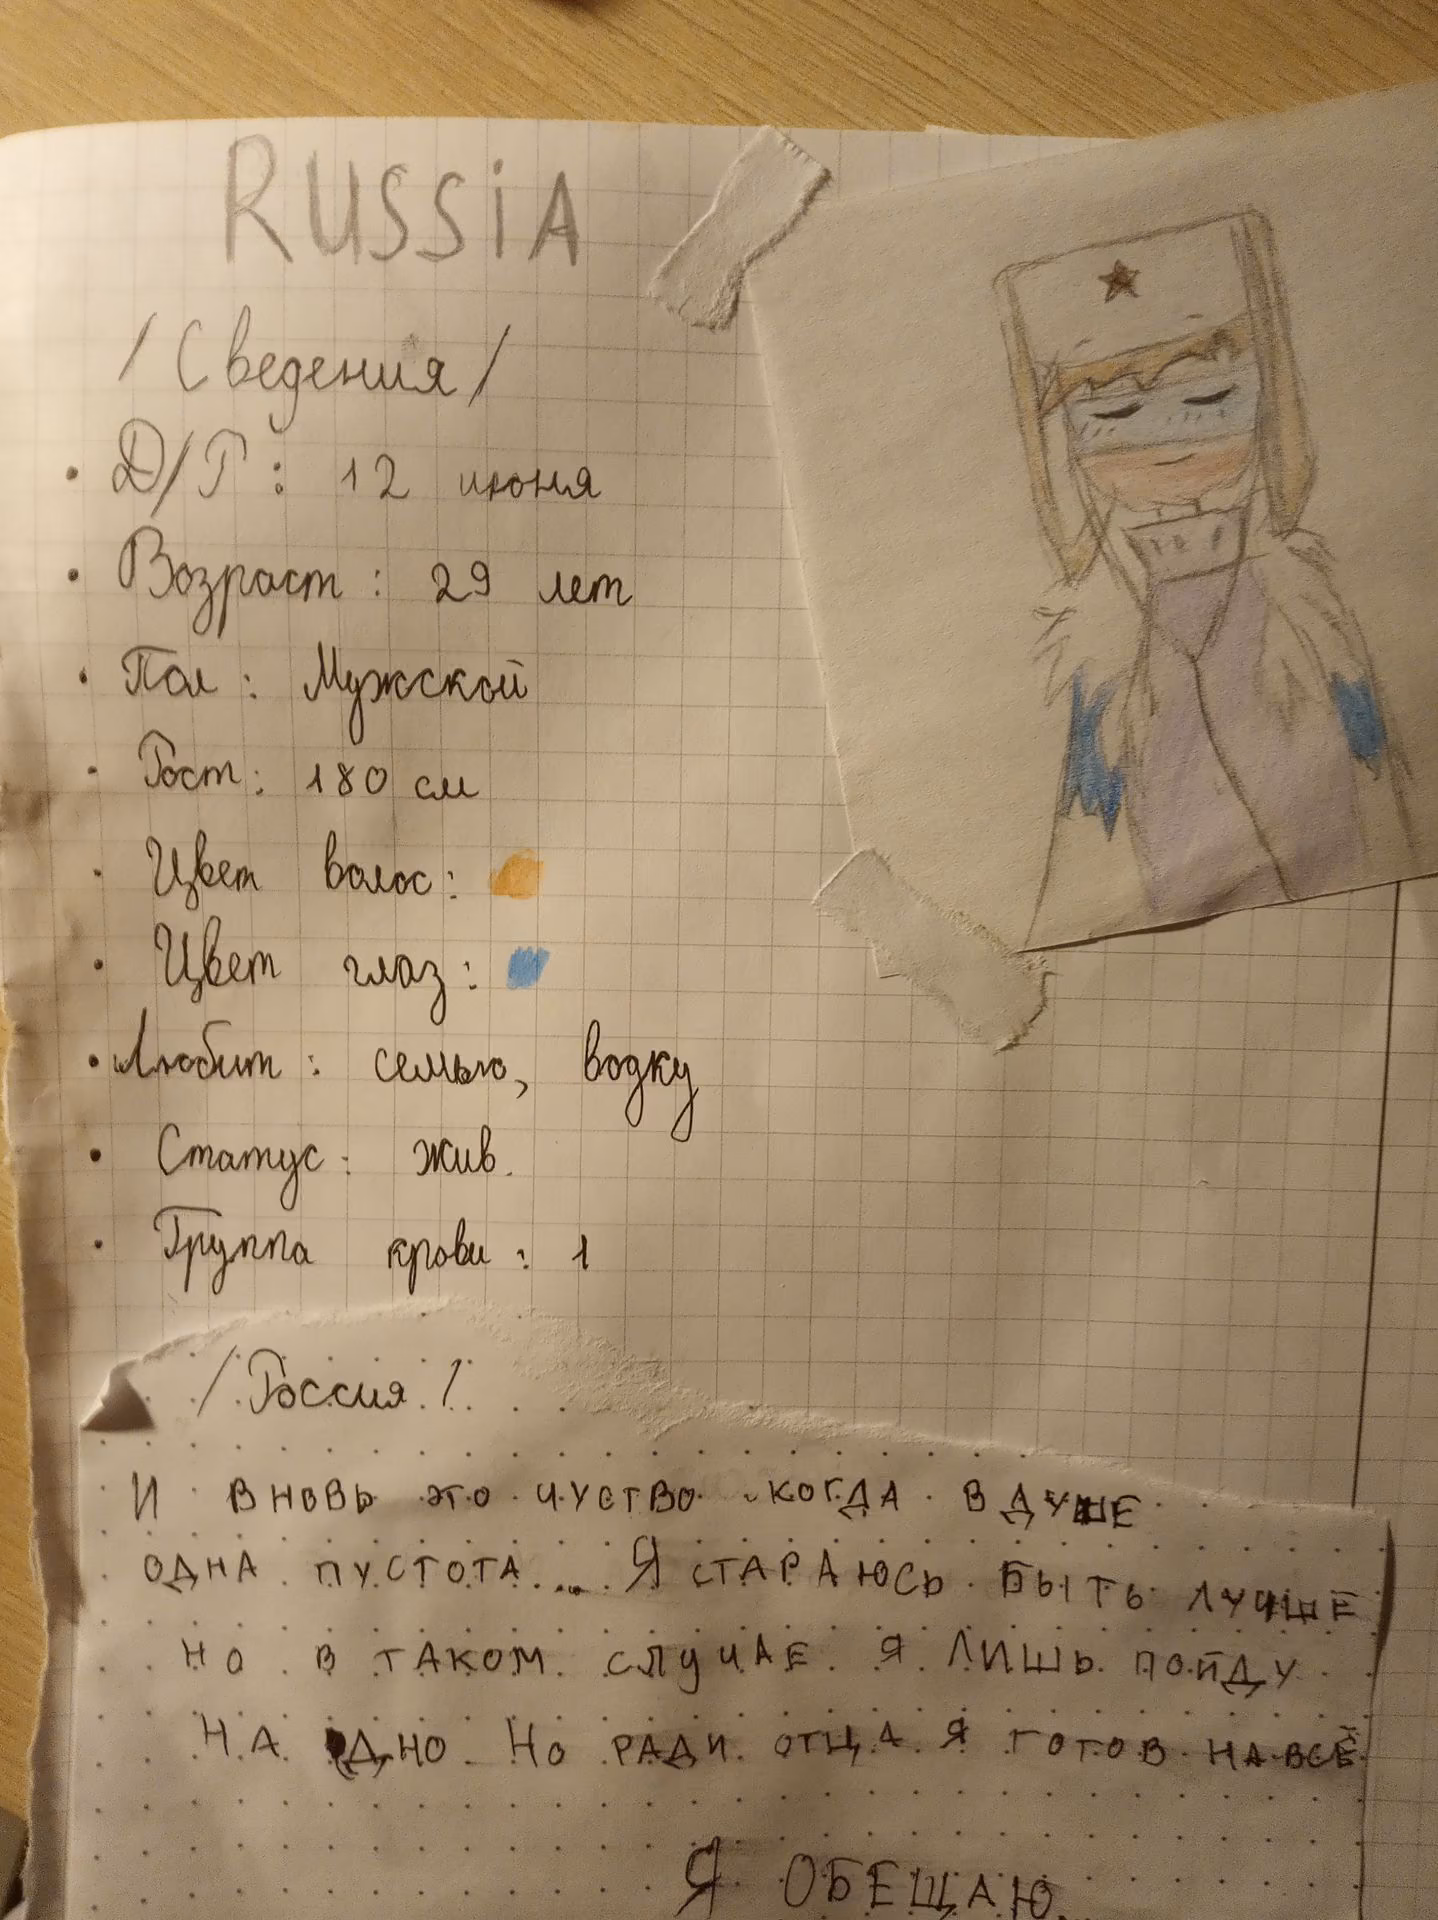 RUSSiA
/Сведения/
• Д/Р: 12 июня
• Возраст: 29 лет
• Пол: Мужской
• Рост: 180 см
• Цвет волос:
• Цвет глаз:
• Любит: семью, водку
• Статус: жив.
• Группа крови: 1
/Россия/
И ВНОВЬ ЭТО ЧУСТВО КОГДА В ДУШЕ
ОДНА ПУСТОТА... Я СТАРАЮСЬ БЫТЬ ЛУЧШЕ
НО В ТАКОМ СЛУЧАЕ Я ЛИШЬ ПОЙДУ
НА ДНО. НО РАДИ ОТЦА Я ГОТОВ НА ВСЁ
Я ОБЕЩАЮ...